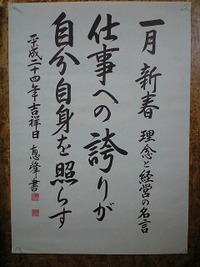 一月 新春 理念と経営の名言
仕事への誇りが
自分自身を照らす
平成二十四年吉祥日 恵峰書